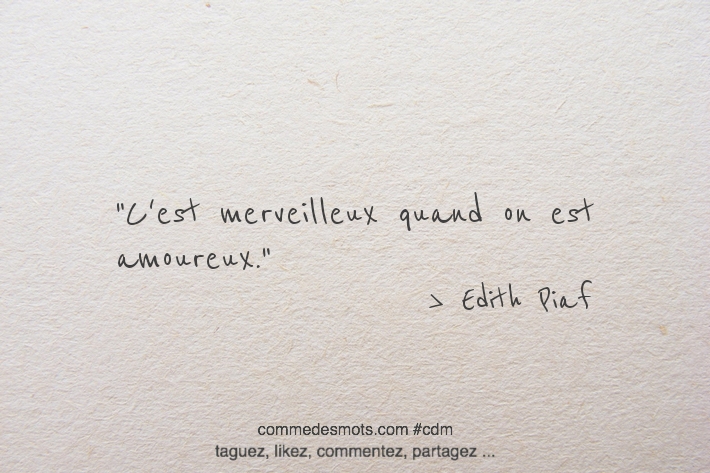 "C'est merveilleux quand on est
amoureux."
> Edith Piaf
commedesmots.com #cdm
taguez, likez, commentez, partagez ...